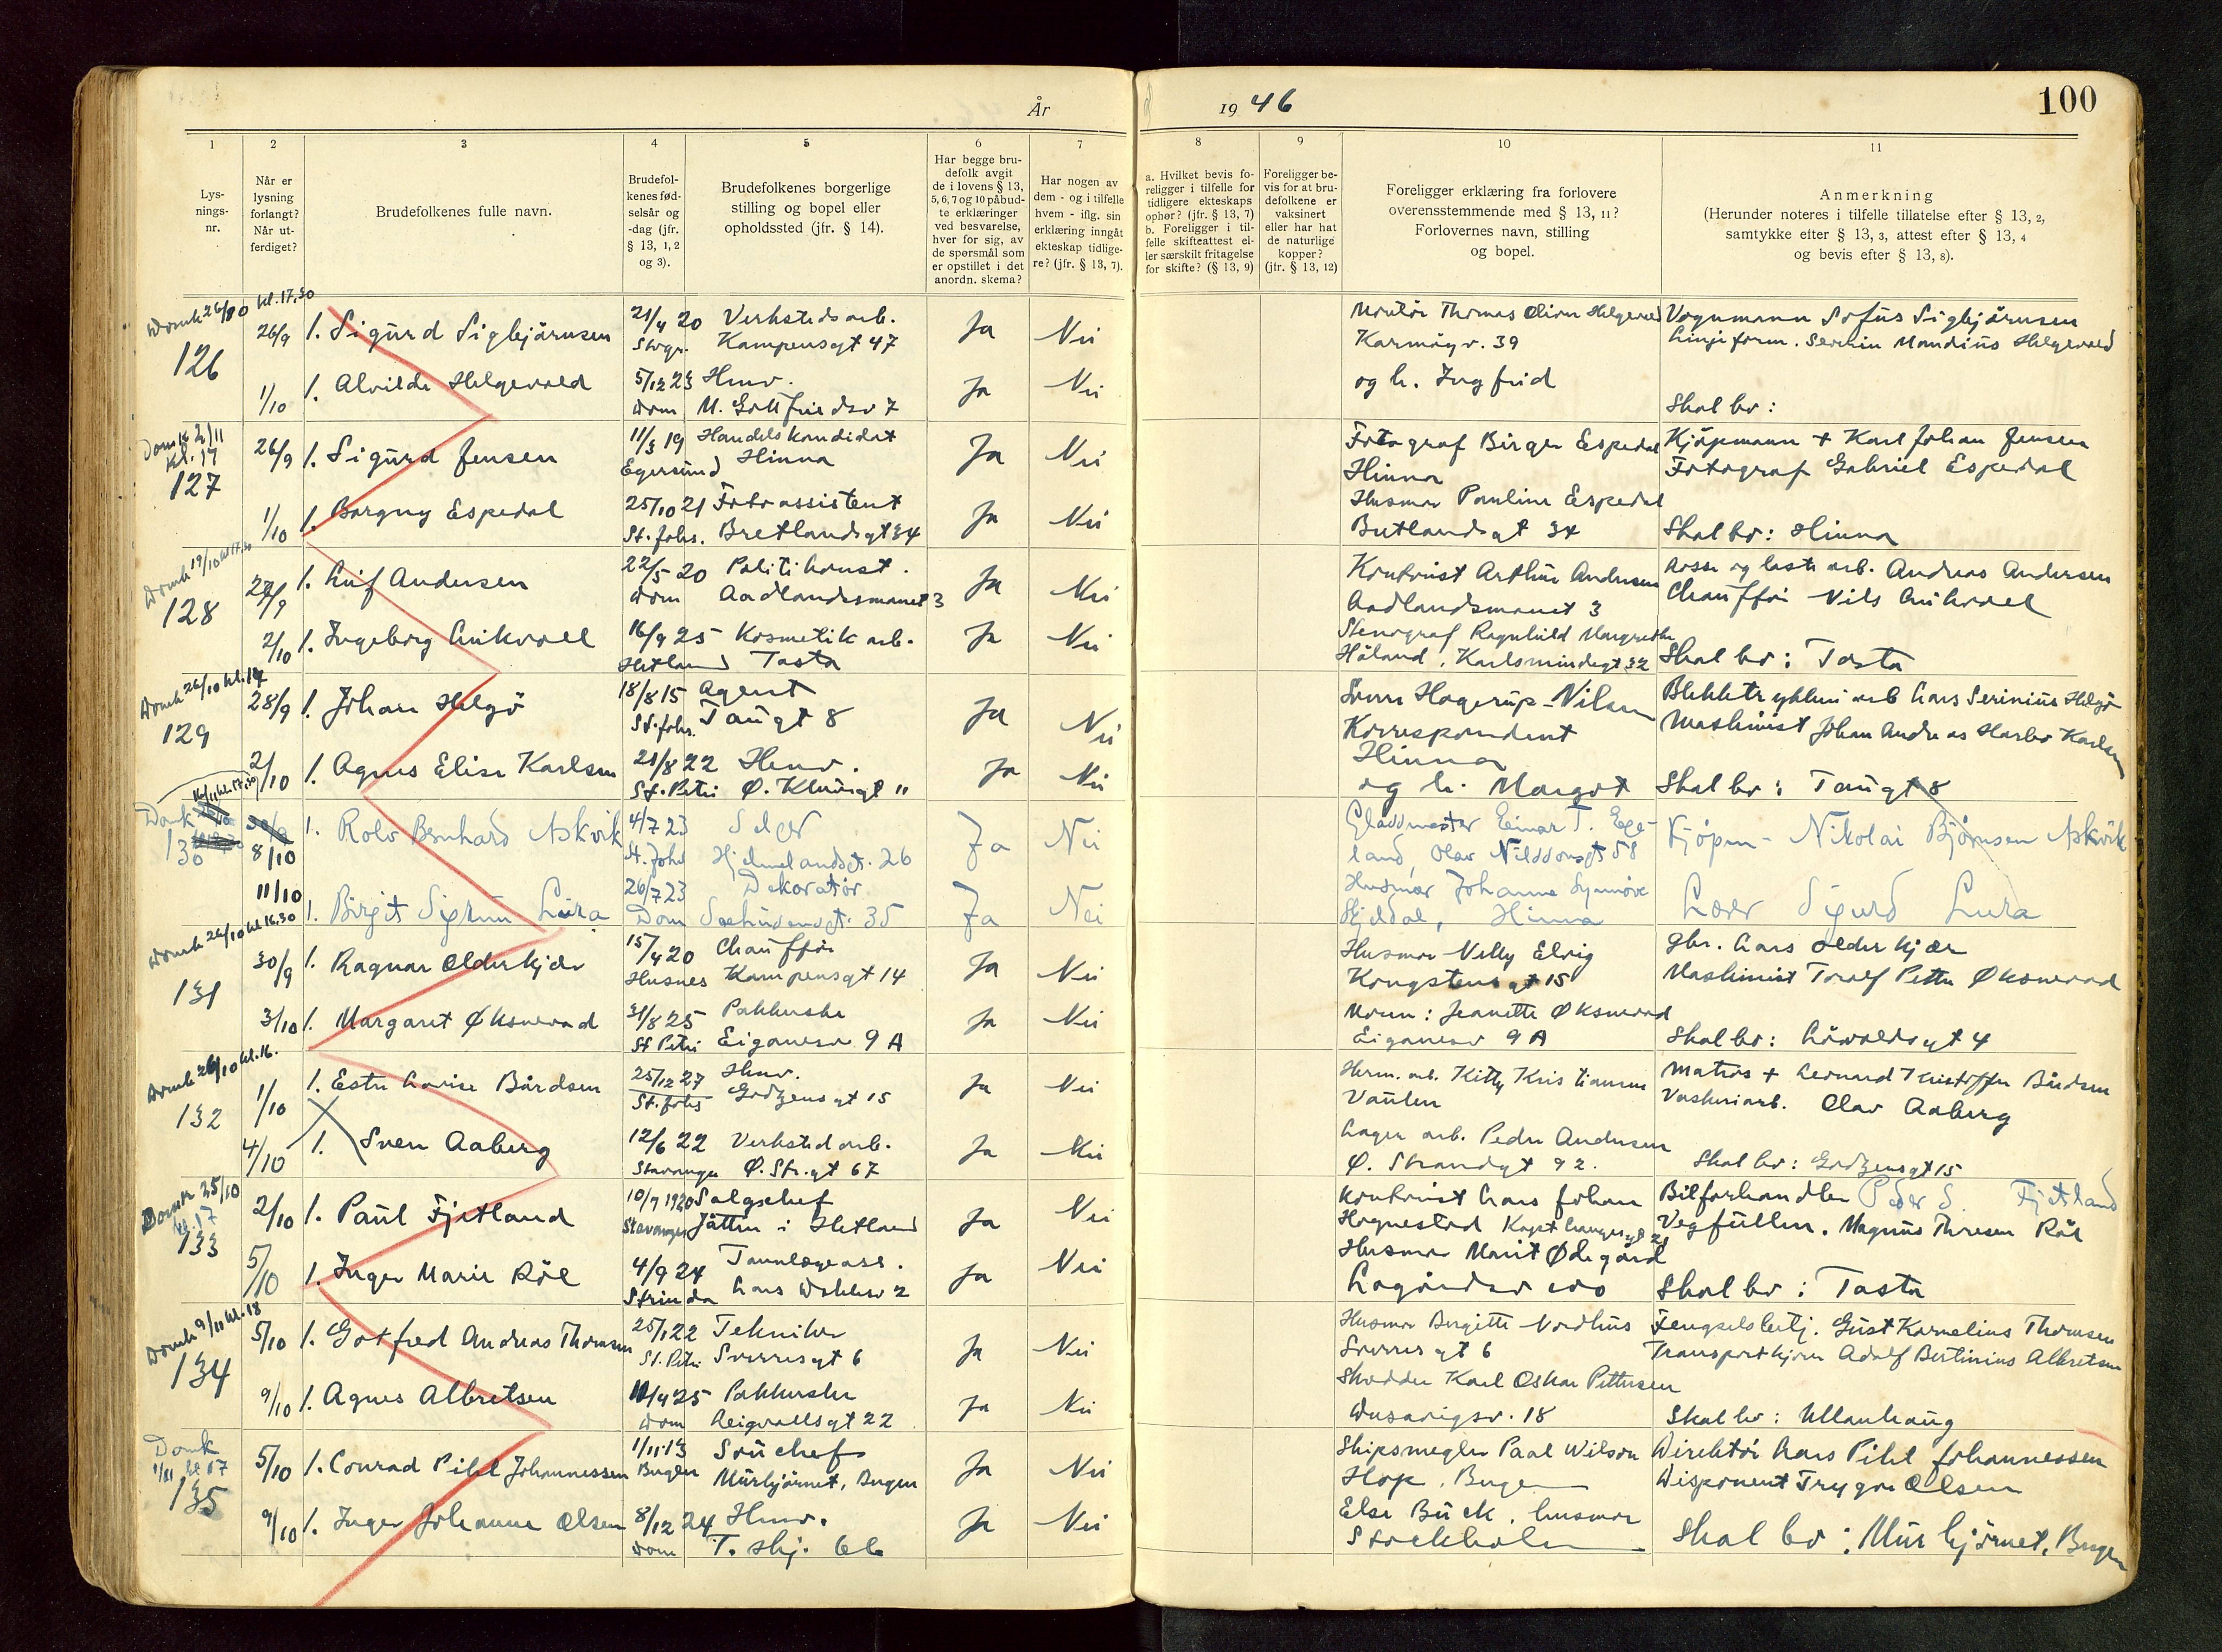 År
19 46
100
1
Lys-
nings-
nr.
2
Når er
lysning
forlangt?
Når ut-
ferdiget?
3
Brudefolkenes fulle navn.
4
Brudefol-
kenes fød-
selsår og
-dag (jfr.
§ 13, 1, 2
og 3).
5
Brudefolkenes borgerlige
stilling og bopel eller
opholdssted (jfr. § 14).
6
Har begge bru-
defolk avgit
de i lovens § 13,
5, 6, 7 og 10 påbud-
te erklæringer
ved besvarelse,
hver for sig, av
de spørsmål som
er opstillet i det
anordn. skema?
7
Har nogen av
dem - og i tilfelle
hvem - iflg. sin
erklæring inngått
ekteskap tidlige-
re? (jfr. § 13, 7).
8
a. Hvilket bevis fo-
religger i tilfelle for
tidligere ekteskaps
ophør? (jfr. § 13, 7)
b. Foreligger i til-
felle skifteattest el-
ler særskilt fritagelse
for skifte? (§ 13, 9)
9
Foreligger be-
vis for at bru-
defolkene er
vaksinert
eller har hat
de naturlige
kopper?
(jfr. § 13, 12)
10
Foreligger erklæring fra forlovere
overensstemmende med § 13, 11?
Forlovernes navn, stilling
og bopel.
11
Anmerkning
(Herunder noteres i tilfelle tillatelse efter § 13, 2,
samtykke efter § 13, 3, attest efter § 13, 4
og bevis efter § 13, 8).
Domk 26/10 kl. 17,30
126
26/9 1. Sigurd Sigbjørnsen 21/4 20 Verkstedsarb. Ja Nei
Stvgr. Kampensgt 47
Montør Thomas Oliver Helgevold Vognmann Sofus Sigbjørnsen
Karmøygv. 39 Linjeform. Serin Mandius Helgevold
1/10 1. Alvilde Helgevold 5/12 23 Husv. Ja Nei
Dom M. Gottfriedsv 7
og h. Ingfrid
Skal bo:
Domk 2/11
kl. 17
127
26/9 1. Sigurd Jensen 11/3 19 Handelskandidat Ja Nei
Egersund Hinna
Fotograf Birger Espedal Kjøpmann + Karl Johan Jensen
Hinna Fotograf Gabriel Espedal
1/10 1. Borgny Espedal 25/10 21 Fotoassistent Ja Nei
St. Johs. Bretlandsgt 34
Husmor Pauline Espedal
Bretlandsgt 34 Skal bo: Hinna
Domk 19/10 kl 17.30
128
28/9 1. Leif Andersen 22/5 20 Politikonst. Ja Nei
Dom Aadlandsmanet 3
Kontorist Arthur Andersen Losse og laste arb. Andreas Andersen
Aadlandsmanet 3 Chauffør Nils Leikvoll
2/10 1. Ingeborg Leikvoll 16/9 25 Kosmetik arb. Ja Nei
Hetland Tasta
Stenograf Ragnhild Margrethe
Håland, Karlsmindegt 32 Skal bo: Tasta
Domk 26/10 kl. 17
129
28/9 1. Johan Helgø 18/8 15 Agent Ja Nei
St. Johs. Taugt 8
Hagerup-Nilsen Blikktrykkeri arb Lars Serinius Helgø
Korrespondent Maskinist Johan Andreas Harbo Karlsen
Hinna
2/10 1. Agnes Elise Karlsen 21/8 22 Husv. Ja Nei
St. Petri Ø. Kleivigt 11
og h. Margot Skal bo: Taugt 8
Domk 16/11 kl. 17,30
130
8/10 1. Rolv Bernhard Askvik 4/7 23 Selger Ja Nei
St. Johs Hjelmelandsgt. 26
Glassmester Einar T. Ege- Kjøpm- Nikolai Bjørnsen Askvik
land, Olav Nilssonsgt 58
11/10 1. Birgit Sigrun Lura 26/7 23 Dekoratør Ja Nei
Dom 35
Husmor Johanne Synnøve Lærer Sigurd Lura
Skjeldal, Hinna
Domk 26/10 kl 16.30
131
30/9 1. Ragnar Olderkjær 15/4 20 Chauffør Ja Nei
Husnes Kampensgt 14
Husmor Nelly Elvig Gbr. Lars Olderkjær
Kongstensgt 15 Maskinist Toralf Petter Øksnevad
3/10 1. Margaret Øksnevad 31/8 25 Pakkerske Ja Nei
St Petri Eiganesv 9 A
Moren: Jeanette Øksnevad
Eiganesv 9 A Skal bo: Løvoldsgt 4
Domk 26/10 kl. 16.
132
1/10 1. Ester Lovise Bårdsen 25/12 27 Husv. Ja Nei
St. Johs Godzensgt 15
Herm. arb. Kitty Kristiansen Matros + Leonard Kristoffer Bårdsen
Vaulen Vaskeriarb. Olav Aaberg
4/10 1. Sven Aaberg 12/6 22 Verksted arb. Ja Nei
Stavanger Ø. Str.gt 67
Lager arb. Peder Andersen
Ø. Strandgt 92. Skal bo: Godzensgt 15
Domk 25/10
kl. 17
133
2/10 1. Paul Fjetland 10/9 1920 Salgschef Ja Nei
Stavanger Jåtten i Hetland
Kontorist Lars Johan Bilforhandler Peder S. Fjetland
Hognestad Kapt Langesgt 21 Vegfullm. Magnus Røe
5/10 1. Inger Marie Røe 4/9 24 Tannlegeass. Ja Nei
Strinda Lars Wohlsv 2
Husmor Marit Ødegård
Lagårdsv 100 Skal bo: Tasta
Domk 9/11 kl. 18
134
5/10 1. Gotfred Andreas Thomsen 25/1 22 Tekniker Ja Nei
St. Petri Sverresgt 6
Husmor Bergitte Nordhus Fengselsbetj. Gust Kornelius Thomsen
Sverresgt 6 Transportkjører Adolf Bertinius Albretsen
9/10 1. Agnes Albretsen 11/4 25 Pakkerske Ja Nei
Dom Reigvallsgt 22
Skredder Karl Oskar Pettersen
Dusavigsv. 18 Skal bo: Ullanhaug
Domk
1/11 kl 17
135
5/10 1. Conrad Pihl Johannessen 1/11 13 Souchef Ja Nei
Bergen Murhjørnet, Bergen
Skipsmegler Paal Wilson Direktør Lars Pihl Johannessen
Hop, Bergen Disponent Trygve Olsen
9/10 1. Inger Johanne Olsen 8/12 24 Husv. Ja Nei
Dom T. skj. 66
Else Buck, husmor
Stockholm Skal bo: Murhjørnet, Bergen